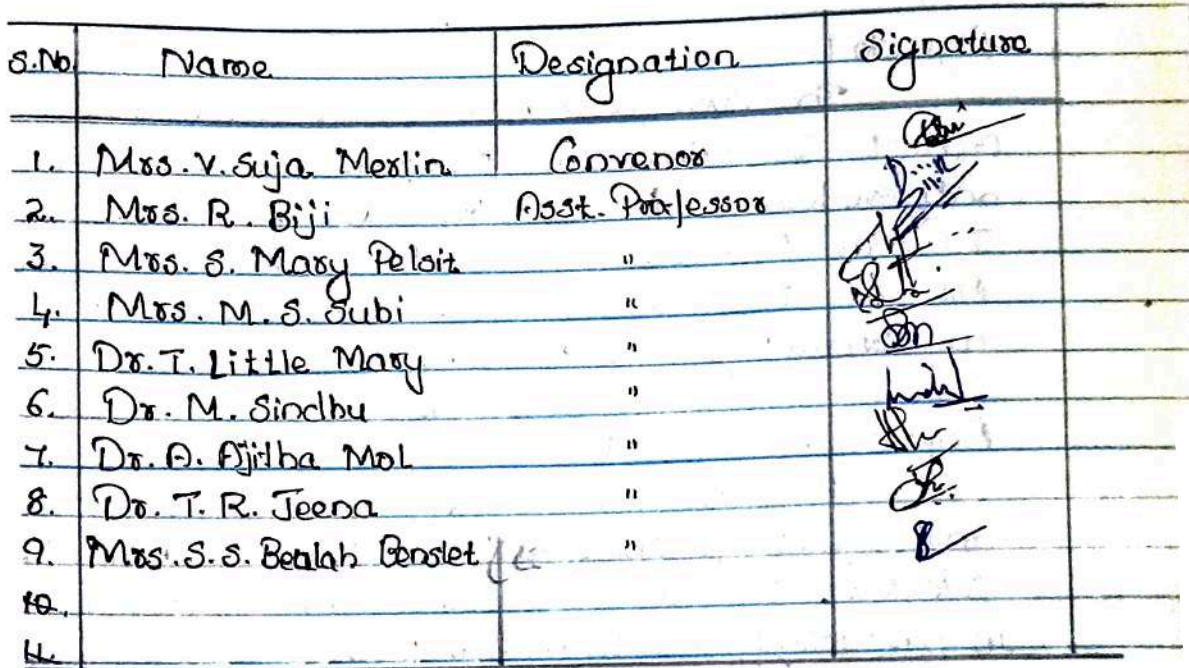 S.No. Name Designation Signature
1. Mrs. V. Suja Merlin Convenor
2. Mrs. R. Biji Asst. Professor
3. Mrs. S. Mary Pelsit "
4. Mrs. M. S. Subi "
5. Dr. T. Little Mary "
6. Dr. M. Sindhu "
7. Dr. A. Ajitha Mol "
8. Dr. T. R. Jeena "
9. Mrs. S. S. Bealah Benslet "
10.
11.